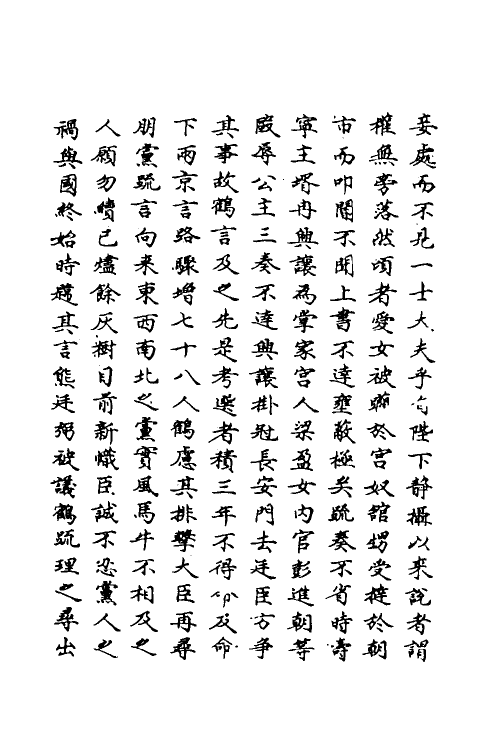 妾處而不見一士大夫乎自陛下靜攝以来說者謂
權無旁落然頃者愛女被辱於宫奴舘甥受撻於朝
市而叩閽不聞上書不達壅蔽極矣疏奏不省時壽
寜主壻冉興讓為掌家宫人梁盈女内官彭進朝等
毆辱公主三奏不達興讓掛冠長安門去廷臣方争
其事故鶴言及之先是考選者積三年不得命及命
下兩京言路驟增七十八人鶴慮其排擊大臣再尋
朋黨疏言向来東西南北之黨實風馬牛不相及之
人願勿嘖已燼餘灰樹目前新幟臣誠不忍黨人之
禍與國終始時韙其言熊廷弼被議鶴疏理之尋出